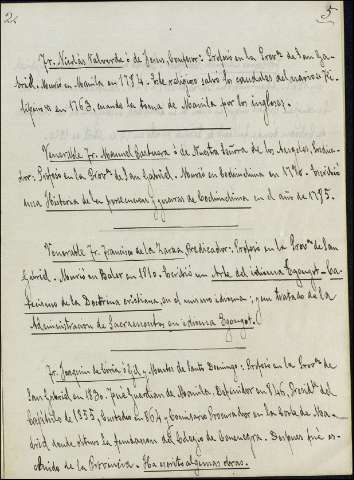 2.
5
Fr. Nicolás Valverde ó de Jesus, Confesor: Profesó en la Provª de San Ga-
briel. Murió en Manila en 1784. Este religioso salvó los caudales del navio Fi-
lipino en 1763, cuando la toma de Manila por los ingleses.
Venerable Fr. Manuel ó de Nuestra Señora de los Angeles,
Profesó en la Provª de San Gabriel. Murió en Cochinchina en 1796. Escribió
una Historia de la persecucion y guerras de Cochinchina en el año de 1795.
Venerable Fr. Francisco de la Zarza, Predicador: Profesó en la Provª de San
Gabriel. Murió en Baler en 1810. Escribió un Arte del idioma Egongot. Ca-
tecismo de la Doctrina cristiana, en el mismo idioma; y un tratado de la
Administracion de Sacramentos en idioma Egongot.
Fr. Joaquin de Coria ó Gil y Montes de Santo Domingo. Profesó en la Provª de
San Gabriel en 1830. Fué Guardian de Manila. Definidor en 846, del
Capítulo de 1855, Custodio en 864 y Comisario Procurador en la Corte de Ma-
drid donde obtuvo la fundacion del Colegio de Consuegra. Despues fué es-
de la Provincia. Ha escrito algunas obras.